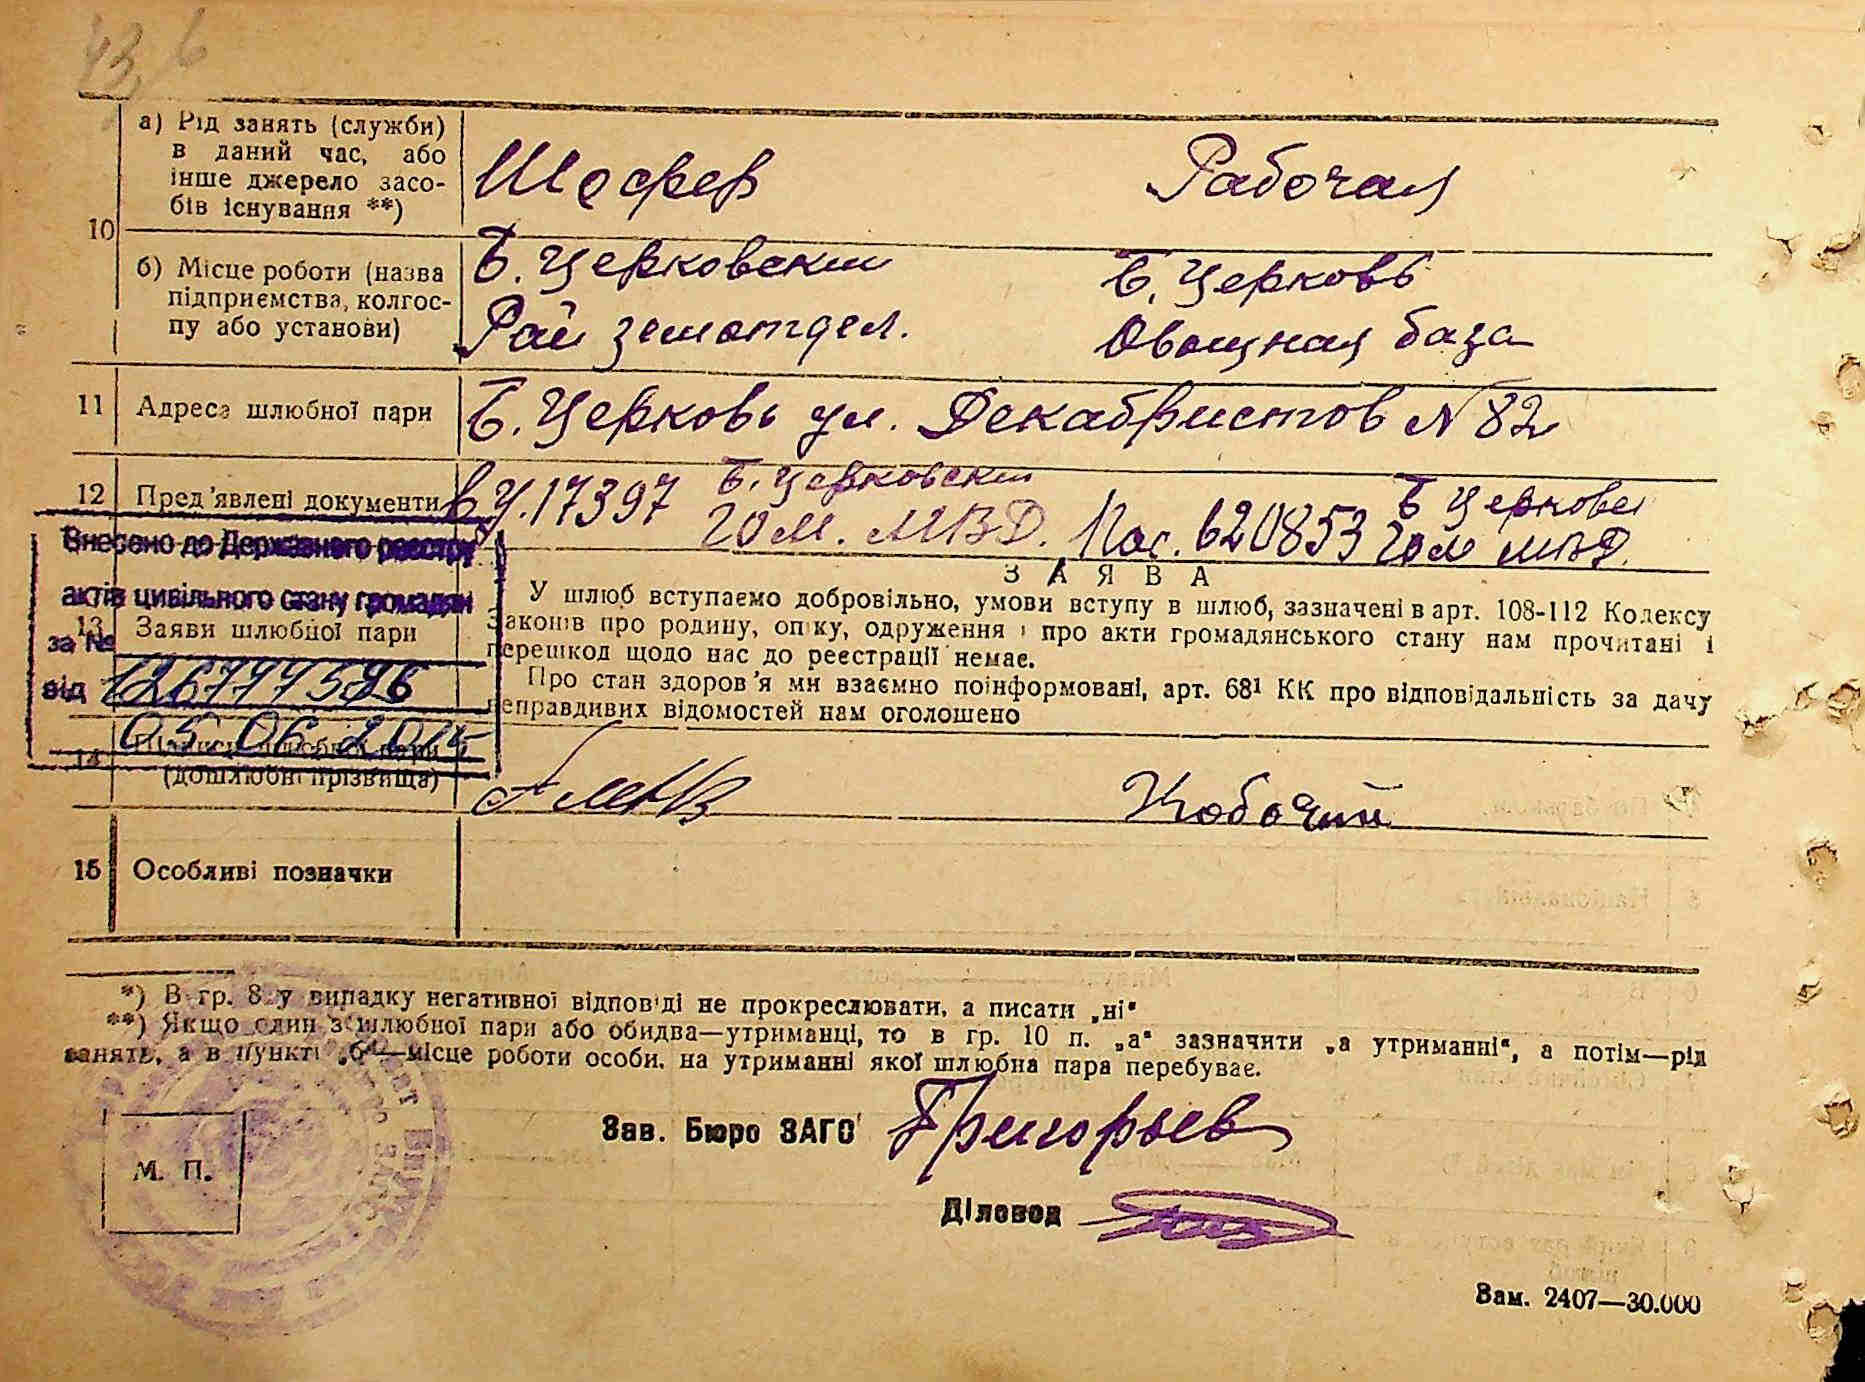 43 6
10
а) Рід занять (служби)
в даний час, або
інше джерело засо-
бів існування **)
Шофер
Рабочая
б) Місце роботи (назва
підприємства, колгос-
пу або установи)
Б. Церковский
Рай земотдел.
Б. Церковь
Овощная база
11 Адреса шлюбної пари
Б. Церковь ул. Декабристов № 82
12 Пред'явлені документи
в/у. 17397 Б. Церковский
гом. МВД.
Пас. 620853 Б Церковс
гом МВД.
Внесено до Державного реєстру
актів цивільного стану громадян
за №
від
05 06
13 Заяви шлюбної пари
ЗАЯВА
У шлюб вступаємо добровільно, умови вступу в шлюб, зазначені в арт. 108-112 Кодексу
Законів про родину, опіку, одруження і про акти громадянського стану нам прочитані і
перешкод щодо нас до реєстрації немає.
Про стан здоров'я ми взаємно поінформовані, арт. 68¹ КК про відповідальність за дачу
неправдивих відомостей нам оголошено
14
шлюбної пари
(дошлюбні прізвища)
Кобочий
15 Особливі позначки
*) В гр. 8 у випадку негативної відповіді не прокреслювати, а писати „ні"
**) Якщо один з шлюбної пари або обидва—утриманці, то в гр. 10 п. „а" зазначити „а утриманні", а потім—рід
занять, а в пункті „б"—місце роботи особи, на утриманні якої шлюбна пара перебуває.
Зав. Бюро ЗАГС Григорьев
М. П.
Діловод
Зам. 2407—30.000